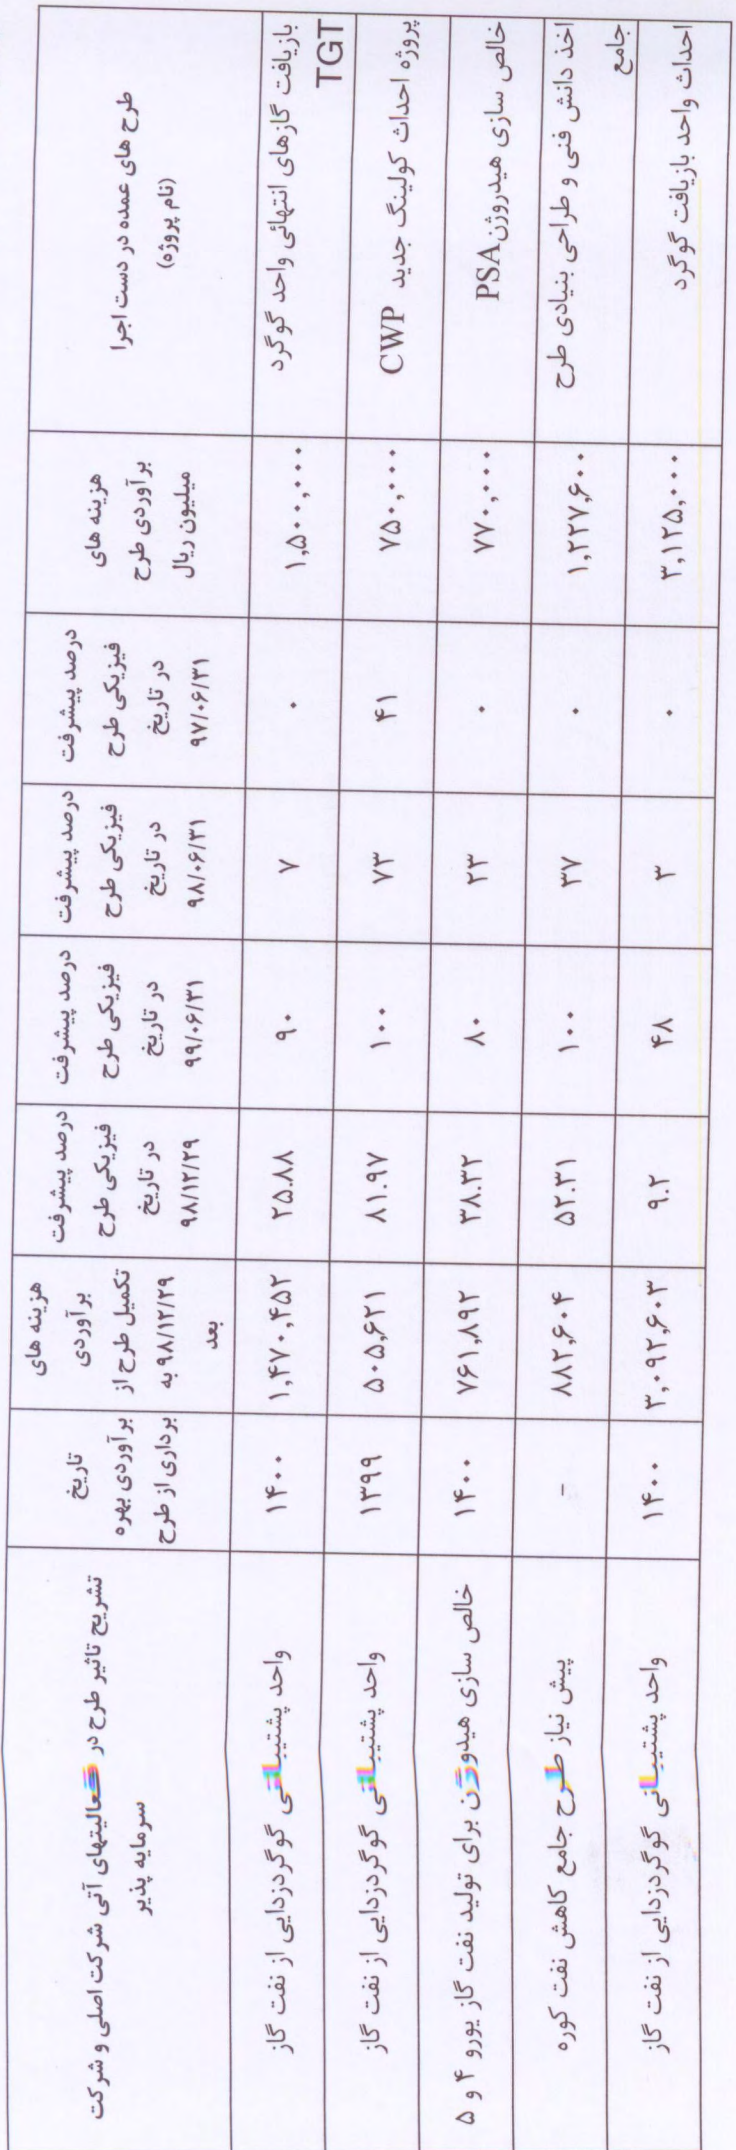 طرح های عمده در دست اجرا
(نام پروژه)
هزینه های
برآوردی طرح
میلیون ریال
درصد پیشرفت
فیزیکی طرح
در تاریخ
۹۷/۰۶/۳۱
درصد پیشرفت
فیزیکی طرح
در تاریخ
۹۸/۰۶/۳۱
درصد پیشرفت
فیزیکی طرح
در تاریخ
۹۹/۰۶/۳۱
درصد پیشرفت
فیزیکی طرح
در تاریخ
۹۸/۱۲/۲۹
هزینه های
برآوردی
تکمیل طرح از
۹۸/۱۲/۲۹ به
بعد
تاریخ
برآوردی بهره
برداری از طرح
تشریح تاثیر طرح در فعالیتهای آتی شرکت اصلی و شرکت
سرمایه پذیر
بازیافت گازهای انتهائی واحد گوگرد
TGT
۱,۵۰۰,۰۰۰
۰
۷
۹۰
۲۵.۸۸
۱,۴۷۰,۴۵۲
۱۴۰۰
واحد پشتیبانی گوگردزدایی از نفت گاز
پروژه احداث کولینگ جدید CWP
۷۵۰,۰۰۰
۴۱
۷۳
۱۰۰
۸۱.۹۷
۵۰۵,۶۲۱
۱۳۹۹
واحد پشتیبانی گوگردزدایی از نفت گاز
خالص سازی هیدروژن PSA
۷۷۰,۰۰۰
۰
۲۳
۸۰
۳۸.۳۲
۷۶۱,۸۹۲
۱۴۰۰
خالص سازی هیدوژن برای تولید نفت گاز یورو ۴ و ۵
اخذ دانش فنی و طراحی بنیادی طرح
جامع
۱,۲۲۷,۶۰۰
۰
۳۷
۱۰۰
۵۲.۳۱
۸۸۲,۶۰۴
-
پیش نیاز طرح جامع کاهش نفت کوره
احداث واحد بازیافت گوگرد
۳,۱۲۵,۰۰۰
۰
۳
۴۸
۹.۲
۳,۰۹۲,۶۰۳
۱۴۰۰
واحد پشتیبانی گوگردزدایی از نفت گاز